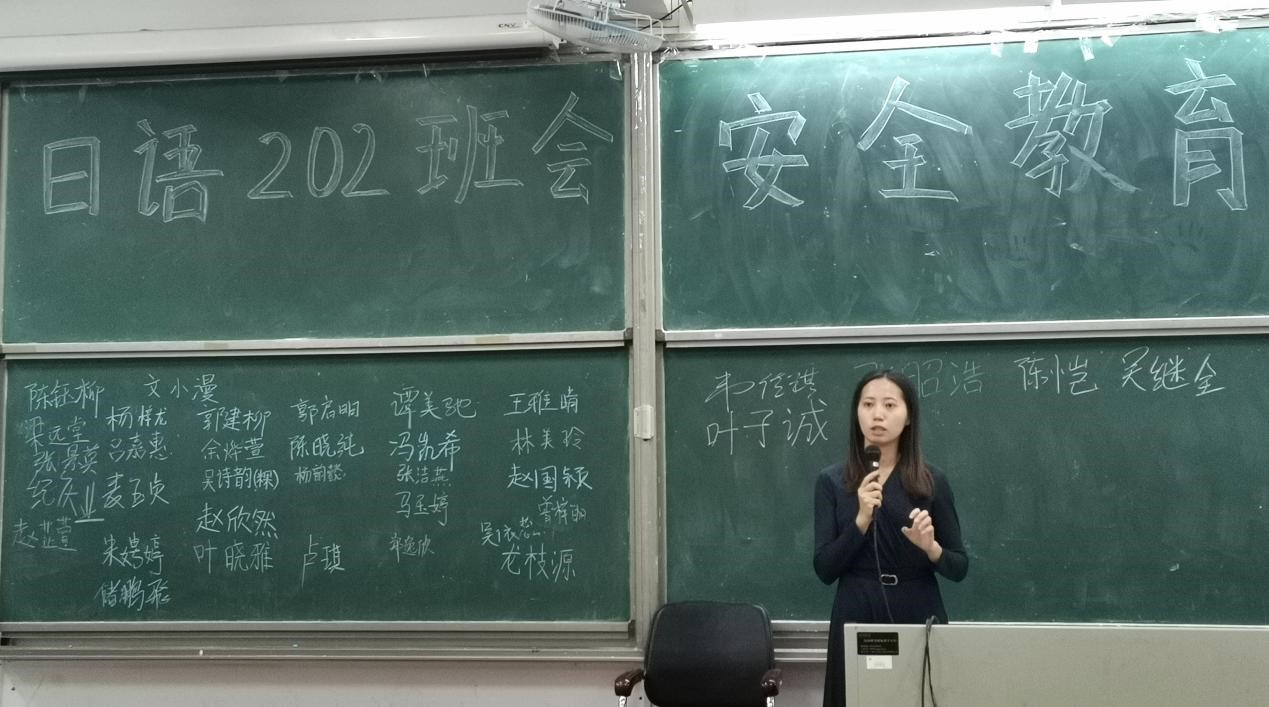 日语202班会
安全教育
陈钰柳 文小漫
杨梓龙 郭建柳 郭启明 谭美驰 王雅婧
梁远堂
张景英 吕嘉惠 余烨萱 陈晓纯 冯凯希 林美玲
吴诗韵(粿) 张洁燕 赵国颖
纪庆业 麦玉贞 马玉婷 曾梓明
赵芷萱 赵欣然
朱娉婷 叶晓雅 卢琪 宋逸欣 龙枝源
储鹏飛
韦佳琪 昭浩 陈恺 吴继全
叶子诚